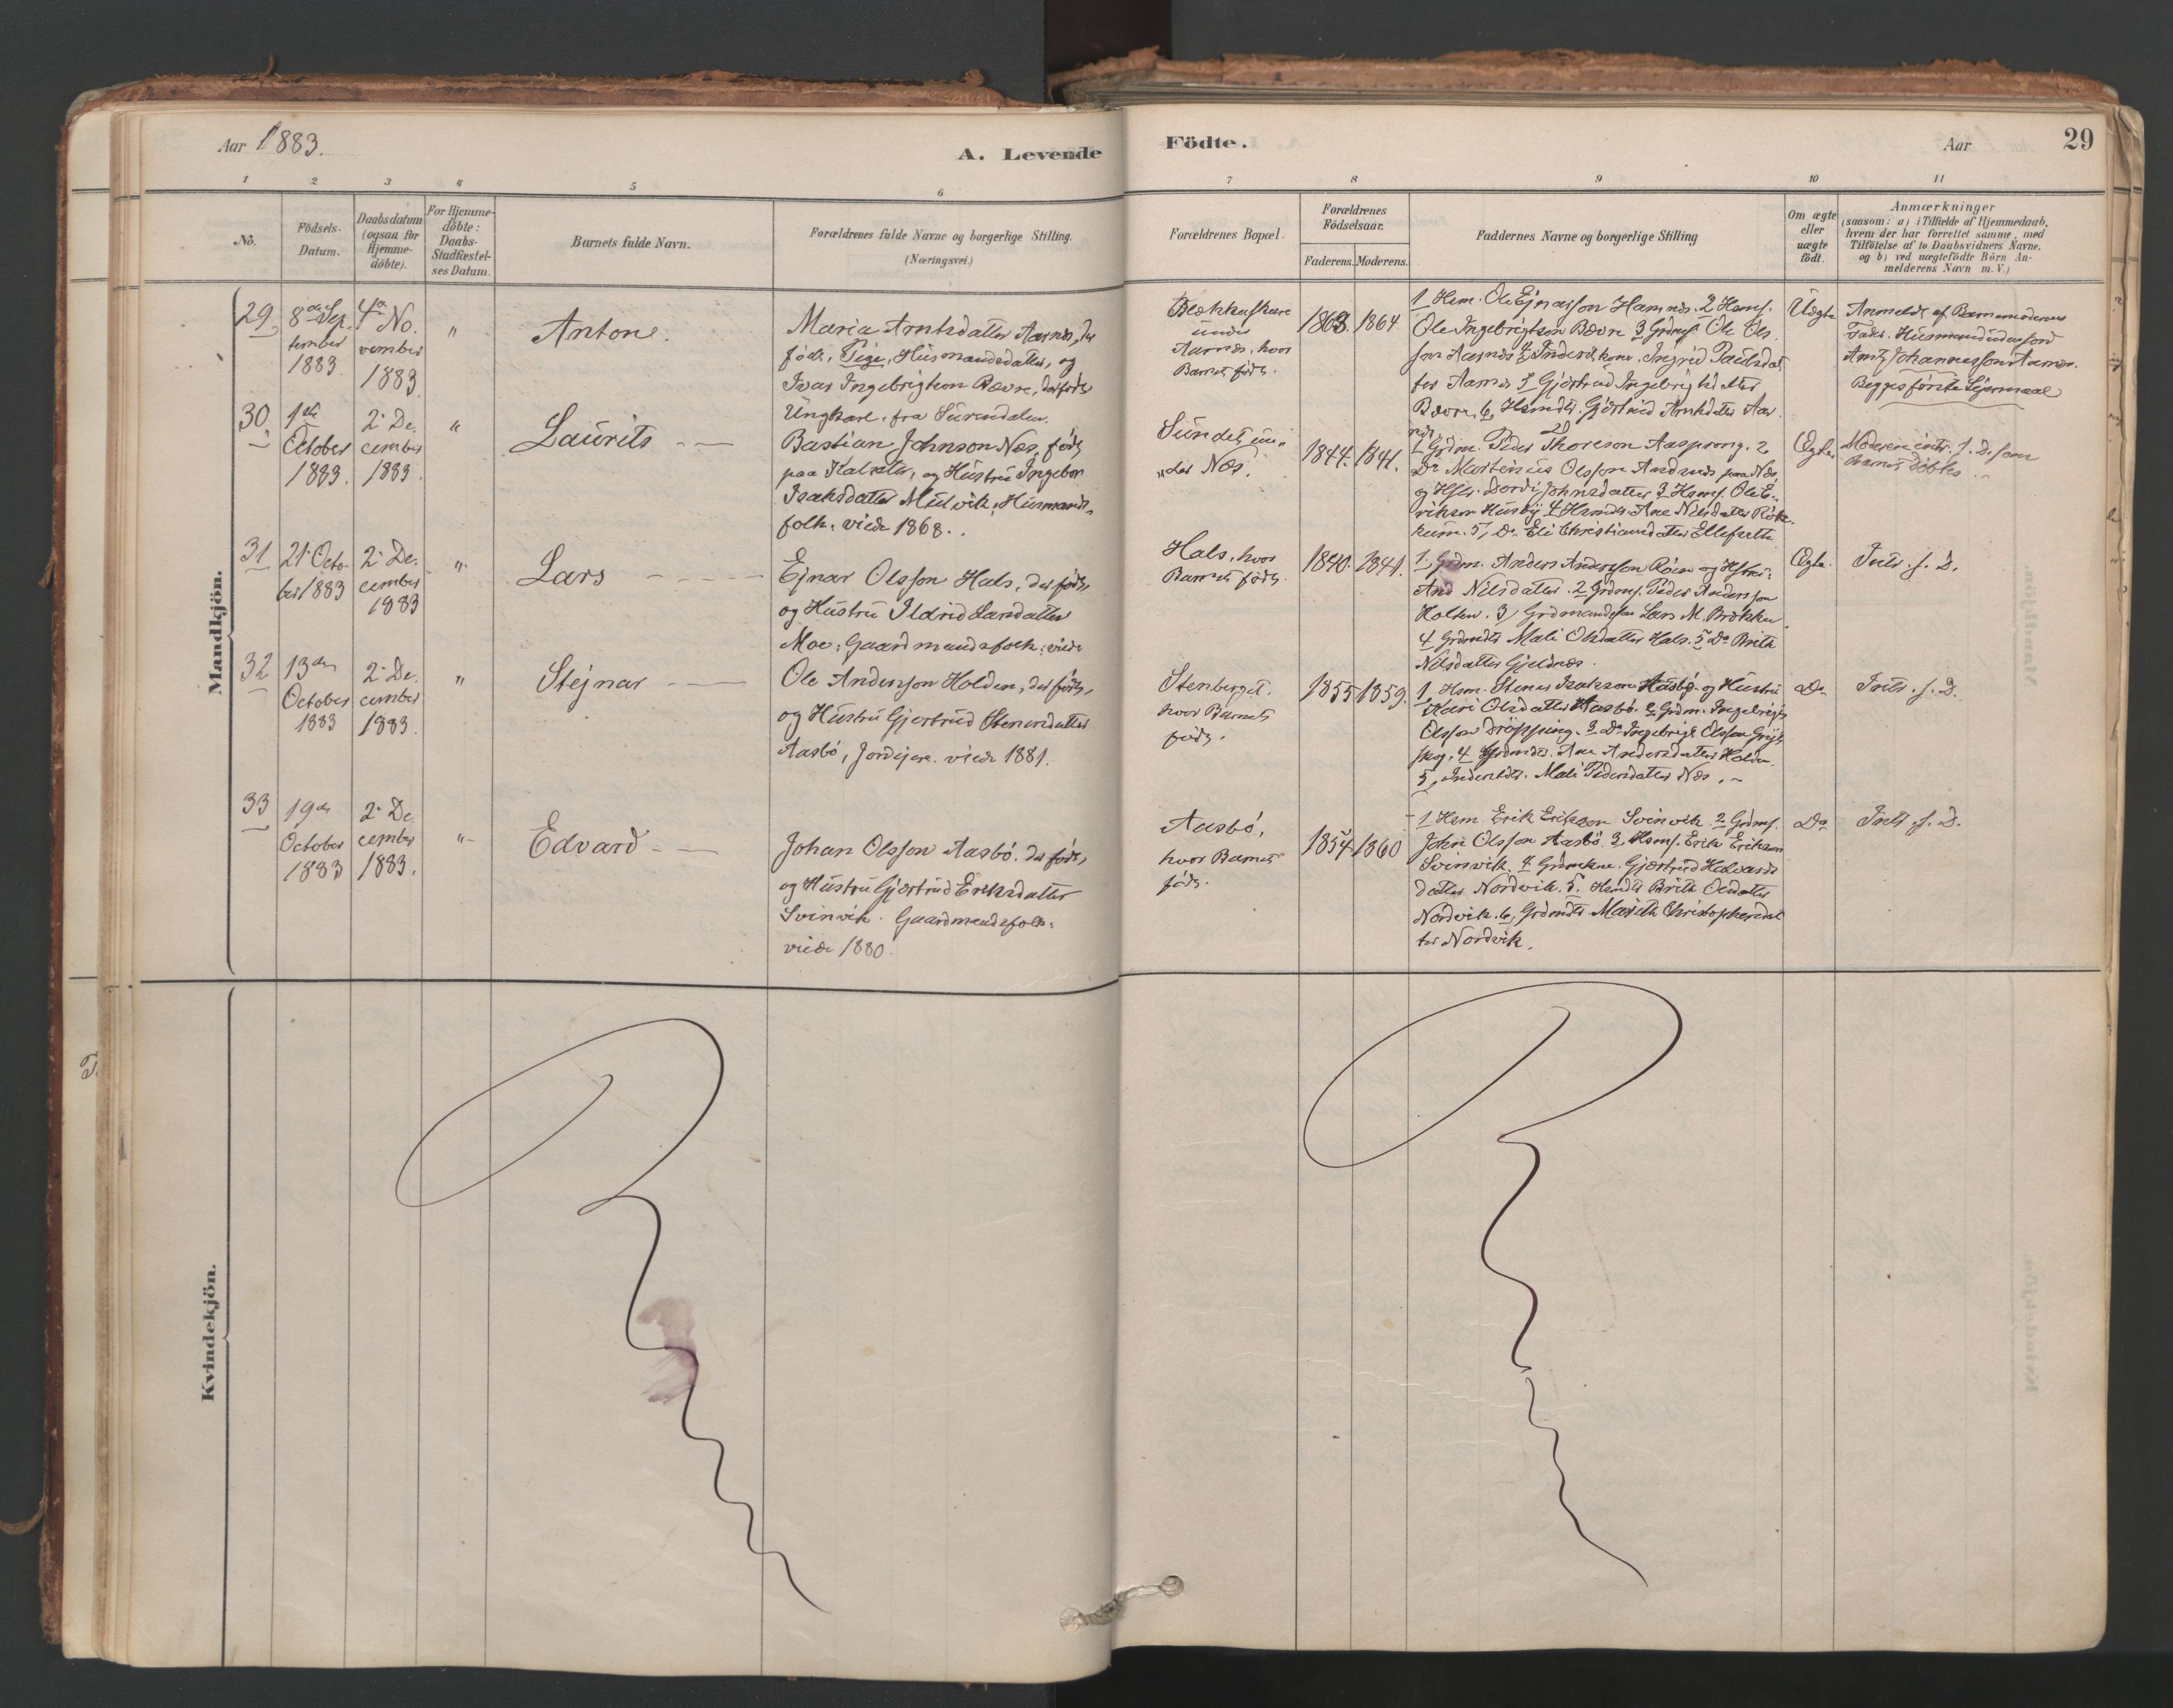 Aar 1883.
A. Levende
Födte.
Aar
29
1 2 3 4 5 6 7 8 9 10 11
No.
Födsels-
Datum.
Daabsdatum
(ogsaa for
Hjemme-
döbte).
For Hjemme-
döbte:
Daabs-
Stadfæstel-
ses Datum.
Barnets fulde Navn.
Forældrenes fulde Navne og borgerlige Stilling.
(Næringsvei.)
Forældrenes Bopæl.
Forældrenes
Födselsaar.
Faderens. Moderens.
Faddernes Navne og borgerlige Stilling
Om ægte
eller
uægte
født.
Anmærkninger
(saasom: a) i Tilfælde af Hjemmedaab,
hvem der har forrettet samme, med
Tilføielse af to Daabsvidners Navne,
og b) ved uægtefödte Börn An-
melderens Navn m.V.)
Mandkjön.
29
8de Sep.
tember
1883
4de No.
vember
1883
"
Anton.
Maria Arntsdatter Aarnes, der
födt, Pige, Husmandsdatter, og
Ivar Ingebrigtson Bævre, der født,
Ungkarl, fra Surendalen.
Brekkeskare
under
Aarnes, hvor
Barnet födt.
1863. 1864
1 Hsm. Ole Ejnarsson Hamnes. 2 Hsmf.
Ole Ingebrigtson Bævre 3 Grdmf. Ole Ols
son Aarnes 4 Inders.kone. Ingrid Paulsdat
ter Aarnes 5 Gjertrud Ingebrigtsdatter
Bævre, 6, Hsmdtr. Gjertrud Arntsdatter Aar
nes.
Uægte
Anmeldt af Barnemoderens
Fader. Husmand
Arnt Johannesson Aarnes.
Begges første Lejermaal
30
1ste
October
1883.
2. De.
cember
1883.
"
Laurits
Bastian Johnson Næs, född
paa Halsæter, og Hustru Ingebor
Isaksdatter Mulvik, Husmands
folk. viede 1868.
Sundet un
der Næs.
1844. 1841.
1 Grdm. Peder Thoreson Aasprong. 2
Do Martinius Olsson Andnes paa Næs
og Hstr. Dordi Johnsdatter 3 Hsmf. Ole E
rikson Husby 4 Hsmdtr. Ane Nilsdatter Rök
kum. 5, Do Eli Christiansdatter Ellefsæth
Ægte.
Moderen intr. s. D. som
Barnet Döbtes.
31
21. Octo-
ber 1883
2. De.
cember
1883
"
Lars
Ejnar Olsson Hals, der födt,
og Hustru Ildrid Larsdatter
Moe, Gaardmandsfolk, viede
Hals, hvor
Barnet födt.
1840. 1841.
1, Grdm. Anders Andersson Röen og Hstru
And Nilsdatter. 2 Grdmf. Peder Andersson
Holten. 3, Grdmandssön Lars M. Brøkken
4 Grdmdtr Mali Olsdatter Hals. 5 Do Brith
Nilsdatter Gjeldnes.
Ægte.
Intr. s. D.
32
13de
October
1883
2. De.
cember
1883.
"
Stejnar
Ole Andersson Holden, der födt,
og Hustru Gjertrud Stenersdatter
Aasbö, Jordejere. viede 1881.
Stenberget.
hvor Barnet
födt.
1855 1859.
1, Hsm. Stener Isakson Aasbö og Hustru
Kari Olsdatter Aasbö. 2 Grdm. Ingebrigt
Olsson Dröpping. 3 Do Ingebrigt Olsson Grejs
skog. 4 Grdmdtr. Ane Andersdatter Holden.
5, Inderstdtr. Mali Pedersdatter Næs.
Do
Intr. s. D.
33
19de
October
1883
2. De.
cember
1883.
"
Edvard
Johan Olsson Aasbö, der född,
og Hustru Gjertrud Eriksdatter
Svinvik. Gaardmandsfolk.
viede 1880.
Aasbö,
hvor Barnet
födt.
1854 1860
1 Hsm Erik Erikson Svinvik. 2 Grdmf.
John Olsson Aasbö 3 Hsmf. Erik Erikson
Svinvik. 4 Grdmkne. Gjertrud Halvards
datter Nordvik. 5. Hsmdtr Brith Olsdatter
Nordvik. 6, Grdmdtr Marith Christophersdat
ter Nordvik.
Do
Intr. s. D.
Kvindekjön.